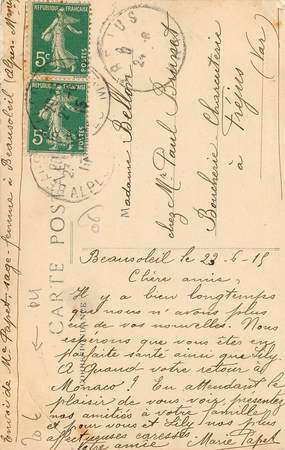 RÉPUBLIQUE FRANÇAISE
5c POSTES
RÉPUBLIQUE FRANÇAISE
5c POSTES
FREJUS
24 -6
CARTE POSTALE
Madame Bellon
chez Mr Paul Brunet
Boucherie Charcuterie
à Fréjus (Var)
Envoi de Me Papet, sage-femme à Beausoleil (Alpes-Mmes)
Beausoleil le 23-6-15
Chère amie,
Il y a bien longtemps
que nous n'avons plus
de vos nouvelles. Nous
esperons que vous êtes en
parfaite santé ainsi que Lily.
A Quand votre retour à
Monaco? En attendant le
plaisir de vous voir, presentez
nos amitiés à votre famille
et pour vous et Lily nos plus
affectueuses caresses.
Votre amie Marie Papet